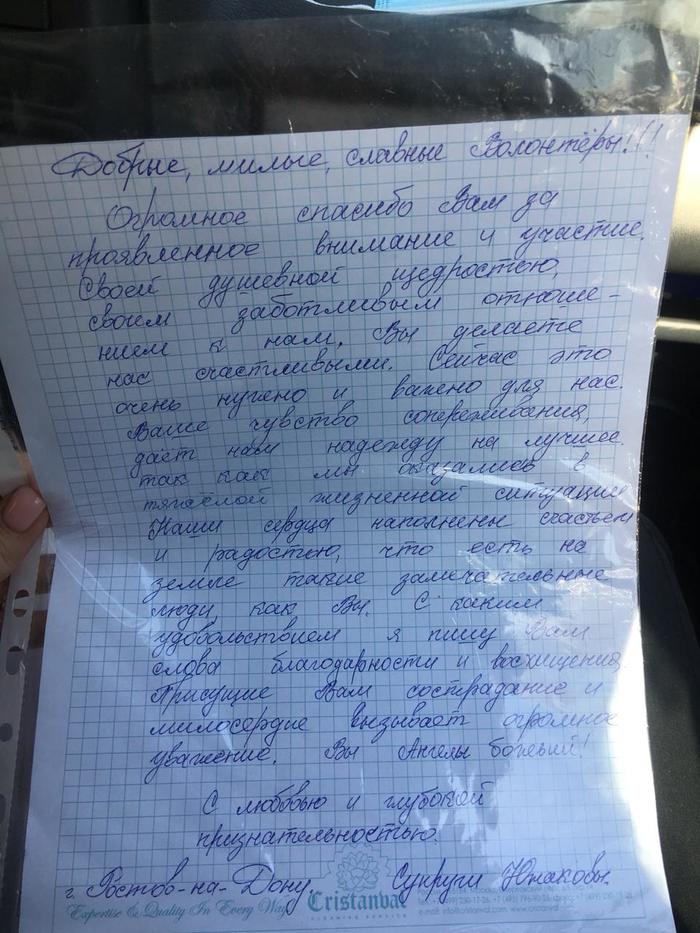 Добрые, милые, славные Волонтёры!!!
Огромное спасибо Вам за
проявленное внимание и участие.
Своей душевной щедростью,
своим заботливым отноше-
нием к нам, Вы делаете
нас счастливыми. Сейчас это
очень нужно и важно для нас.
Ваше чувство сопереживания,
даёт нам надежду на лучшее.
так как мы оказались в
тяжёлой жизненной ситуации
Наши сердца наполнены счастьем
и радостью, что есть на
земле такие замечательные
люди как Вы. С каким
удовольствием я пишу Вам
слова благодарности и восхищения.
Присущие Вам сострадание и
милосердие вызывает огромное
уважение. Вы Ангелы божьи!
С любовью и глубокой
признательностью.
г. Ростов-на-Дону Супруги Южаковы.
Expertise & Quality In Every Way
Cristanval
CLEANING SERVICE